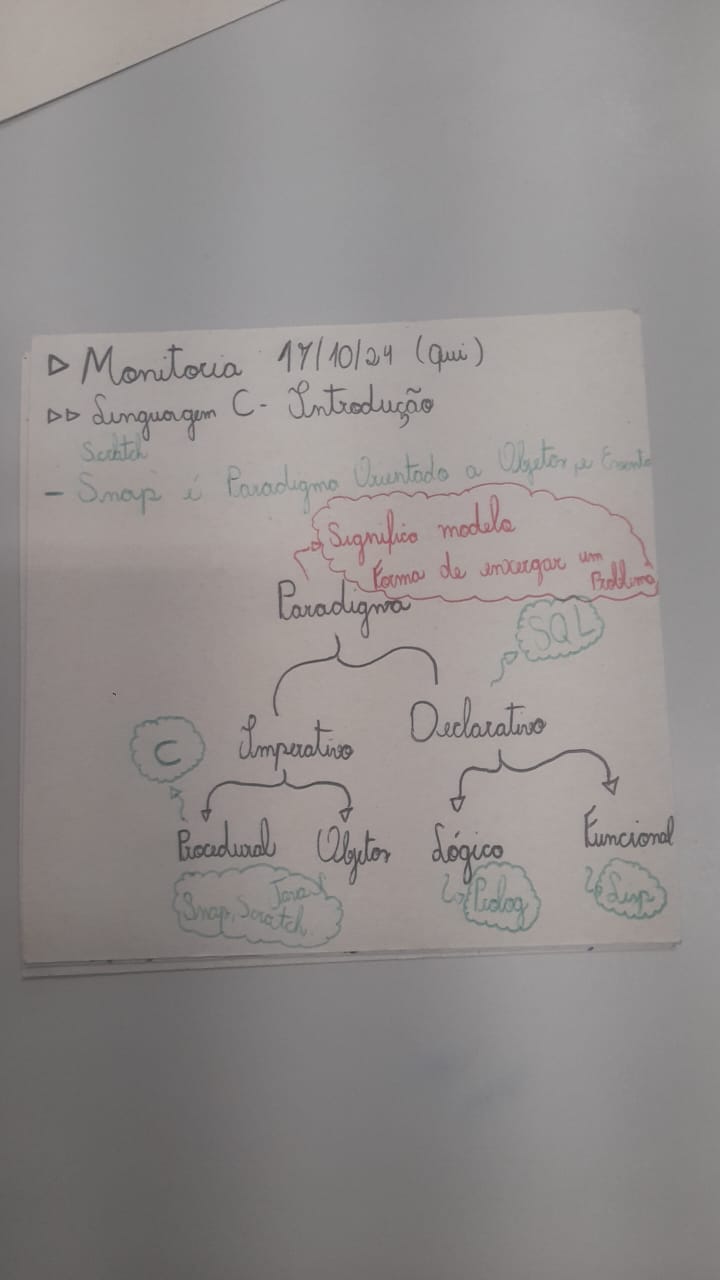 ▷ Monitoria 17/10/24 (Qui)
▷▷ Linguagem C - Introdução
Scratch
- Snap é Paradigma Orientado a Objetos e Evento
Significa modelo
Forma de enxergar um
Problema
Paradigma
SQL
Imperativo Declarativo
C
Procedural Objetos Lógico Funcional
Java
Snap, Scratch Prolog Lisp